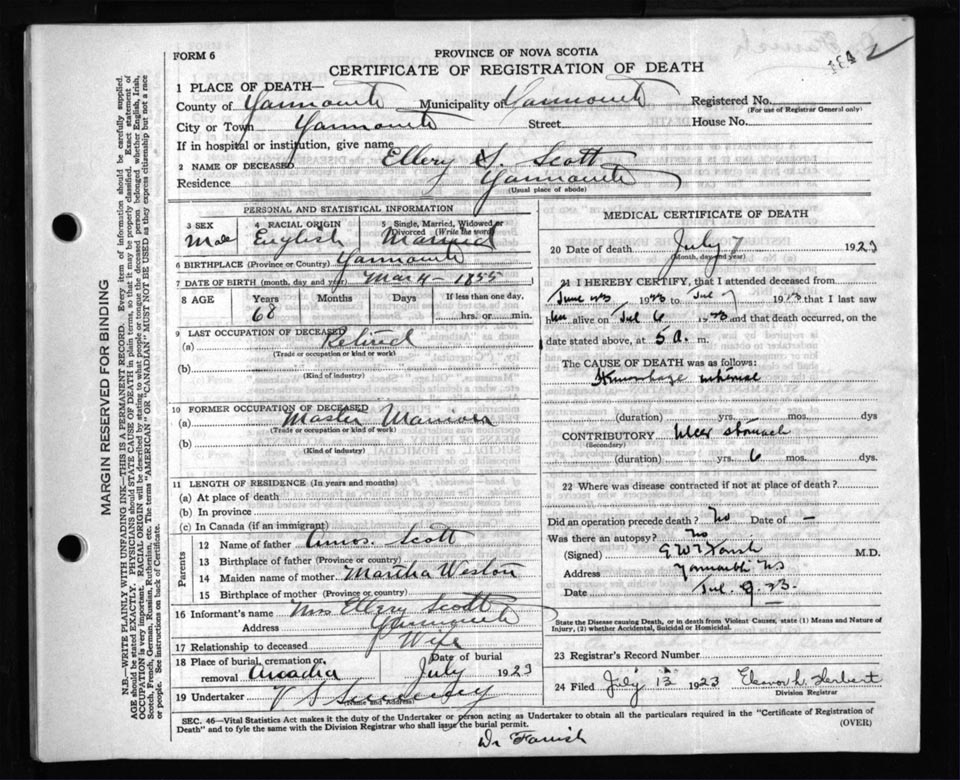 FORM 6
PROVINCE OF NOVA SCOTIA
CERTIFICATE OF REGISTRATION OF DEATH
1 PLACE OF DEATH—
County of Yarmouth Municipality of Yarmouth Registered No.
(For use of Registrar General only)
City or Town Yarmouth Street House No.
If in hospital or institution, give name
2 NAME OF DECEASED Ellery S. Scott
Residence Yarmouth
(Usual place of abode)
PERSONAL AND STATISTICAL INFORMATION
3 SEX 4 RACIAL ORIGIN 5 Single, Married, Widowed or Divorced (Write the word)
Male English Married
6 BIRTHPLACE (Province or Country) Yarmouth
7 DATE OF BIRTH (month, day and year) Mar 4 - 1855
8 AGE Years Months Days If less than one day,
68 hrs. or min.
9 LAST OCCUPATION OF DECEASED
(a) Retired
(Trade or occupation or kind of work)
(b)
(Kind of industry)
10 FORMER OCCUPATION OF DECEASED
(a) Master Mariner
(Trade or occupation or kind of work)
(b)
(Kind of industry)
11 LENGTH OF RESIDENCE (In years and months)
(a) At place of death
(b) In province
(c) In Canada (if an immigrant)
Parents
12 Name of father Amos. Scott
13 Birthplace of father (Province or country)
14 Maiden name of mother Martha Weston
15 Birthplace of mother (Province or Country)
16 Informant's name Mrs Ellery Scott
Address Yarmouth
17 Relationship to deceased Wife
18 Place of burial, cremation or Date of burial
removal Arcadia July 1923
19 Undertaker V S Sweeney
(Name and Address)
MEDICAL CERTIFICATE OF DEATH
20 Date of death July 7 1923
(Month, day and year)
21 I HEREBY CERTIFY, that I attended deceased from
June 1923 to Jul 7 1923 that I last saw
him alive on Jul 6 1923 and that death occurred, on
date stated above, at 5 a. m.
The CAUSE OF DEATH was as follows:
Hemorrhage internal
(duration) yrs. mos. dys
CONTRIBUTORY Ulcer stomach
(Secondary)
(duration) yrs. 6 mos. dys.
22 Where was disease contracted if not at place of death?
Did an operation precede death? No Date of —
Was there an autopsy? No
(Signed) G W T Farish M.D.
Address Yarmouth NS
Date Jul. 9. 23.
State the Disease causing Death, or in death from Violent Causes, state (1) Means and Nature of
Injury, (2) whether Accidental, Suicidal or Homicidal.
23 Registrar's Record Number
24 Filed July 13 1923 Eleanor L. Herbert
Division Registrar
SEC. 46—Vital Statistics Act makes it the duty of the Undertaker or person acting as Undertaker to obtain all the particulars required in the "Certificate of Registration of
Death" and to fyle the same with the Division Registrar who shall issue the burial permit.
(OVER)
Dr Farish
MARGIN RESERVED FOR BINDING
N.B.—WRITE PLAINLY WITH UNFADING INK—THIS IS A PERMANENT RECORD. Every item of information should be carefully supplied.
AGE should be stated EXACTLY. PHYSICIANS should STATE CAUSE OF DEATH in plain terms, so that it may be properly classified. Exact statement of
OCCUPATION is very important. RACIAL ORIGIN will be described by stating to what people or tongue the deceased person belonged, whether English, Irish,
Scotch, French, German, Russian, Ruthenian, etc. The terms "AMERICAN" OR "CANADIAN" MUST NOT BE USED as they express citizenship but not a race
or people. See instructions on back of Certificate.